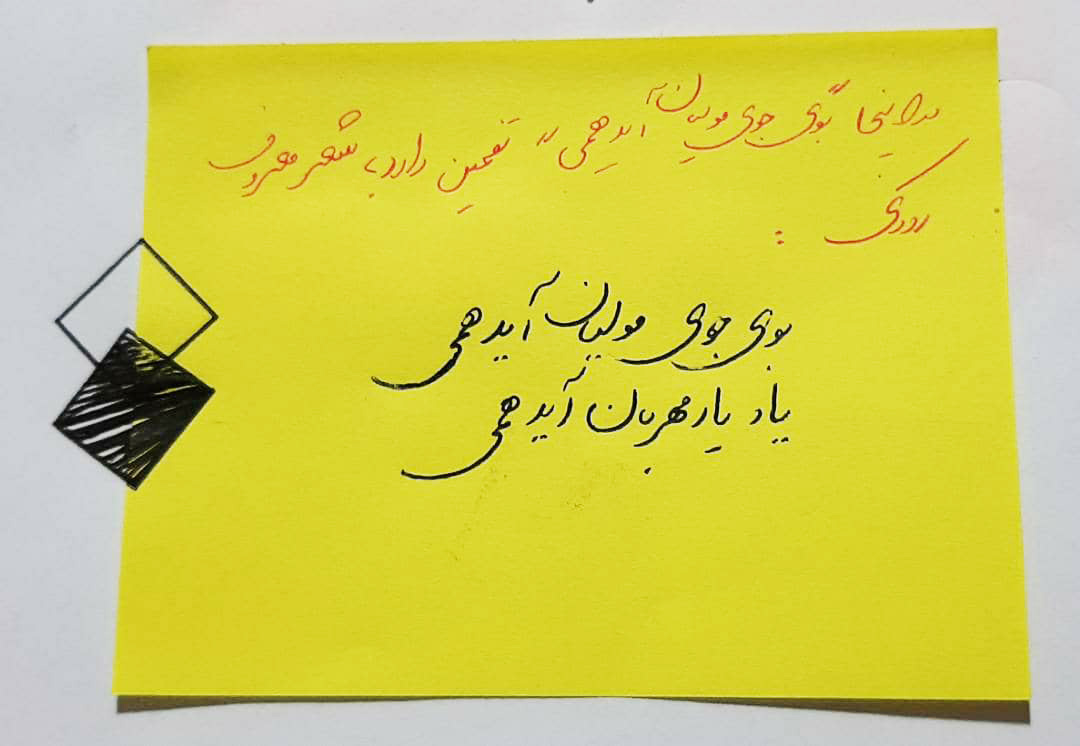 در اینجا "بوی جوی مولیان آید همی" تضمین دارد به شعر معروف
رودکی :
بوی جوی مولیان آید همی
یاد یار مهربان آید همی